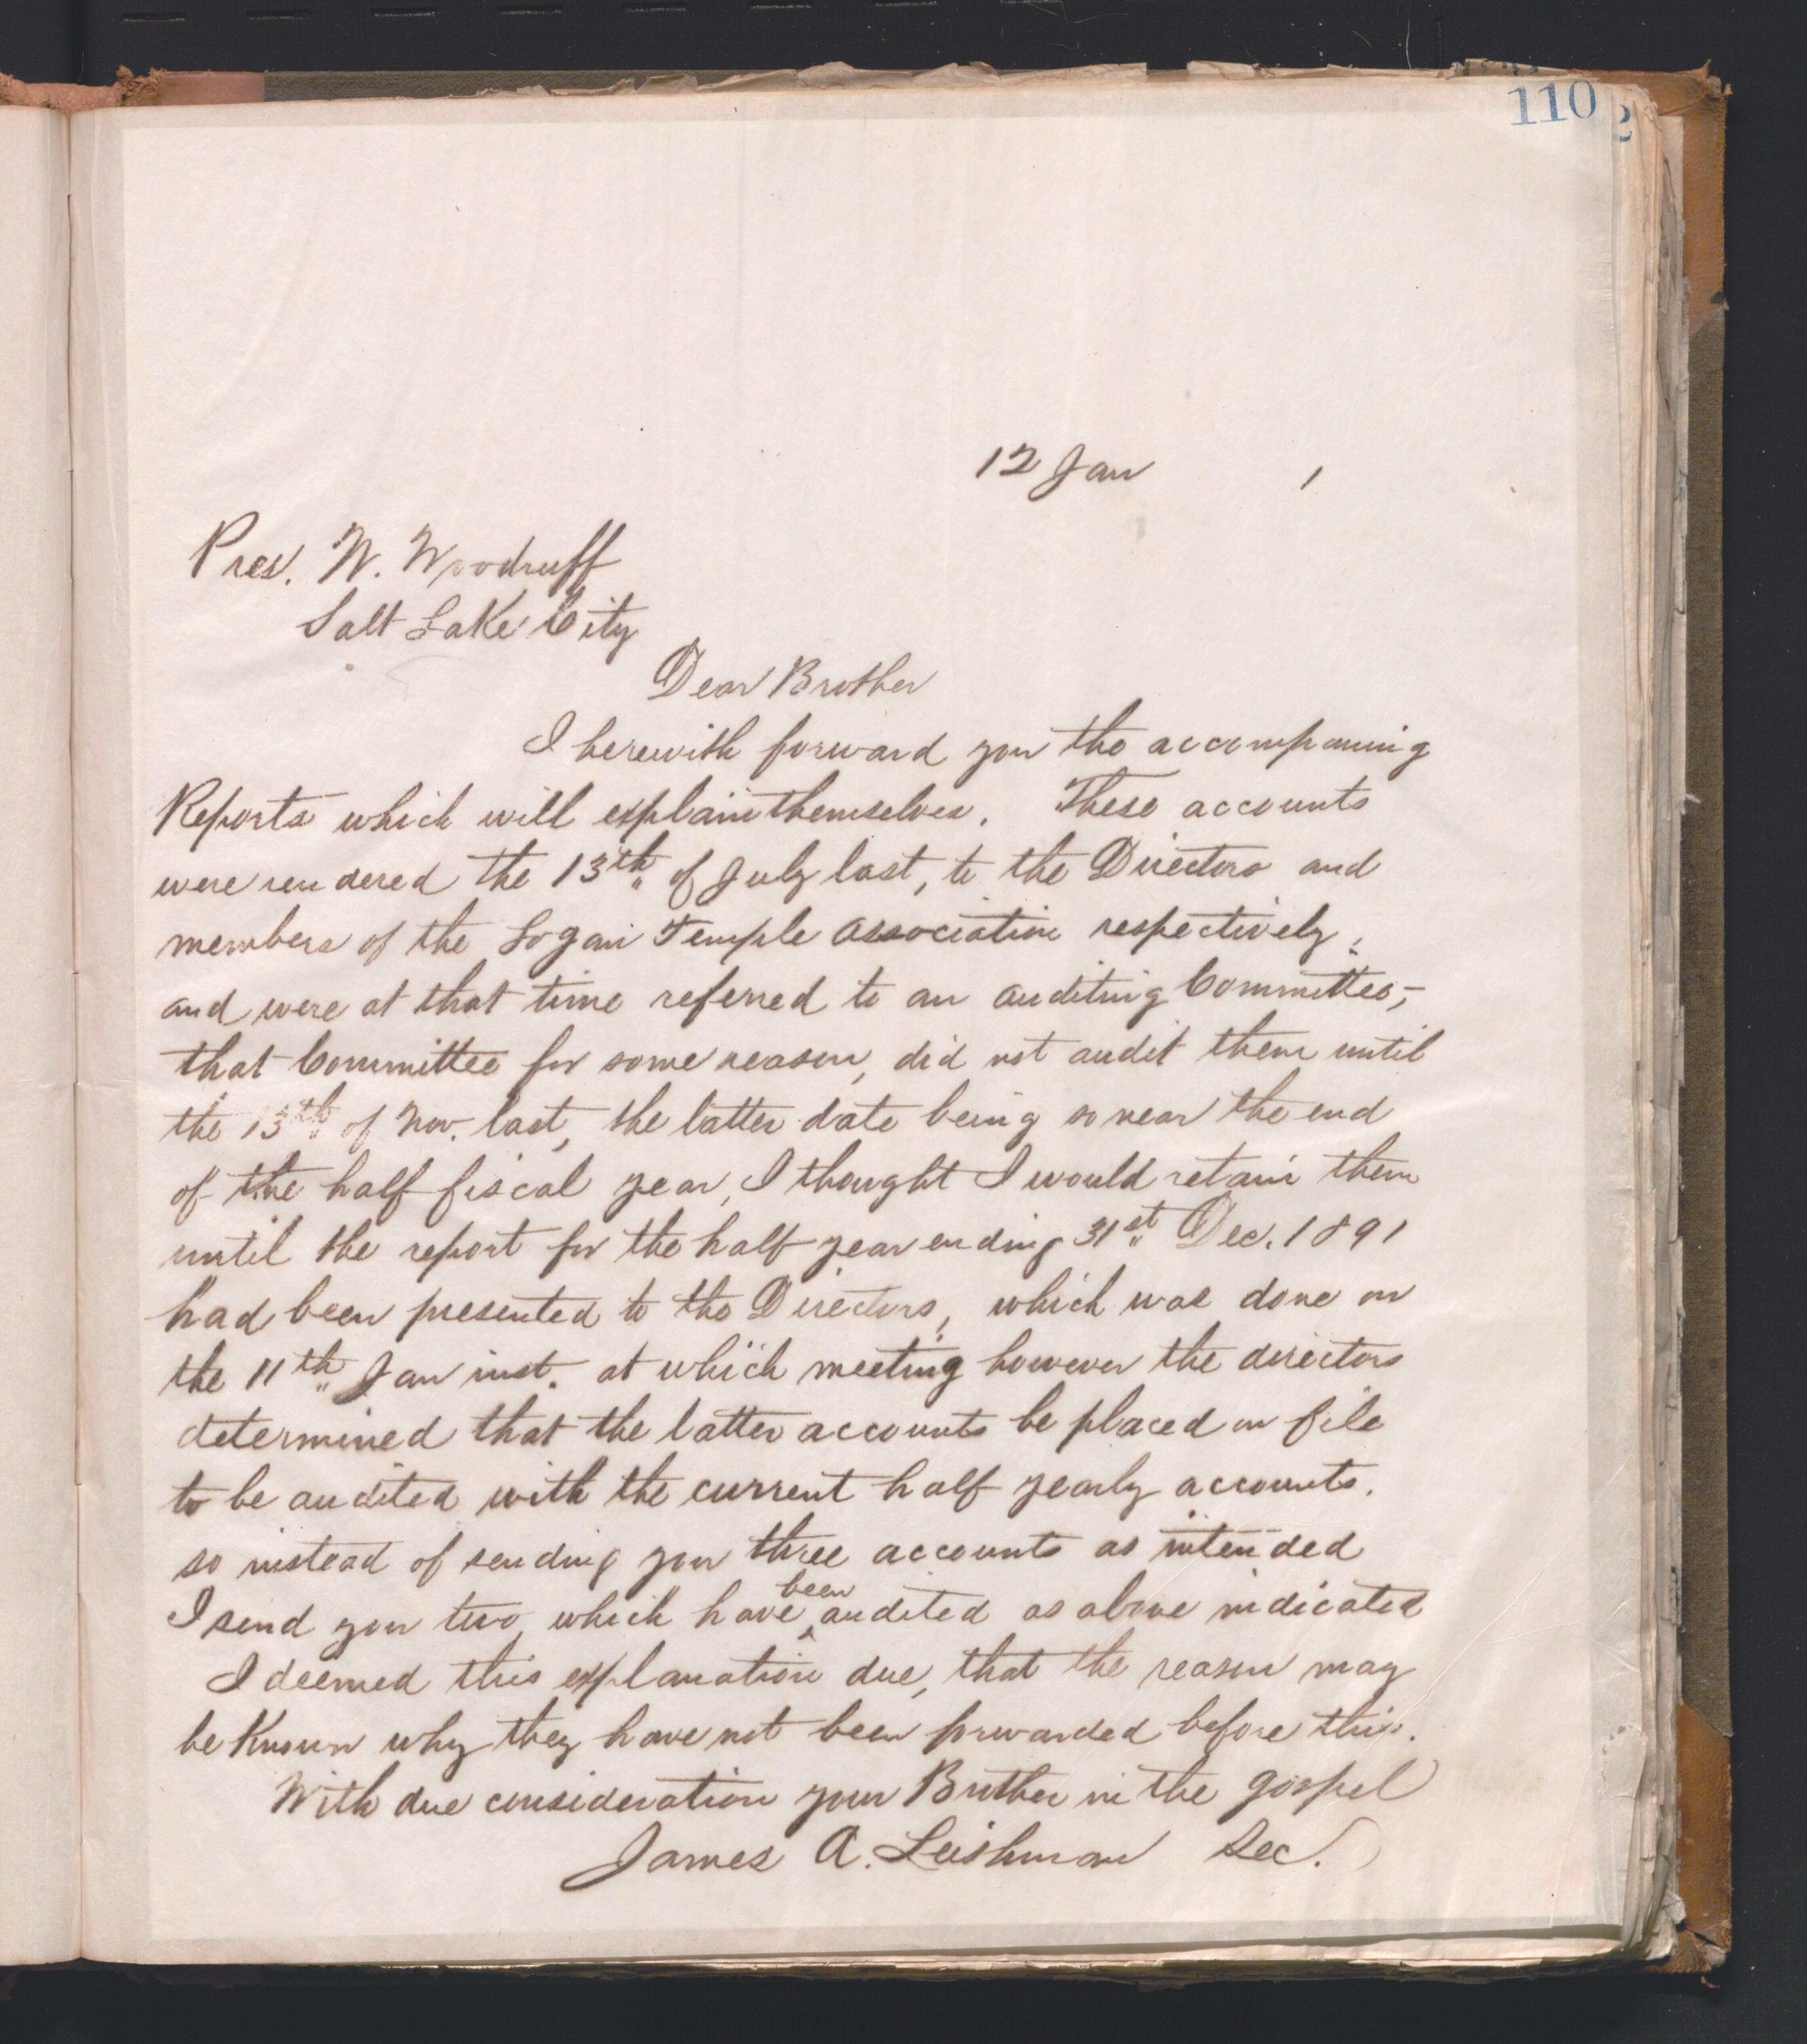 110
12 Jan 1
Pres. W. Woodruff
Salt Lake City
Dear Brother
I herewith forward you the accompaning
Reports which will explain themselves. These accounts
were rendered the 13th of July last, to the Directors and
members of the Logan Temple Association respectively,
and were at that time referred to an auditing Committee,-
that Committee for some reason, did not audit them until
the 13th of Nov. last, the latter date being so near the end
of the half fiscal year, I thought I would retain them
until the report for the half year ending 31st Dec. 1891
had been presented to the Directors, which was done on
the 11th Jan inst. at which meeting however the directors
determined that the latter accounts be placed on file
to be audited with the current half yearly accounts.
so instead of sending you three accounts as intended
I send you two, which have been audited as above indicated
I deemed this explanation due, that the reason may
be Known why they have not been forwarded before this.
With due consideration your Brother in the gospel
James A. Leishman Sec.